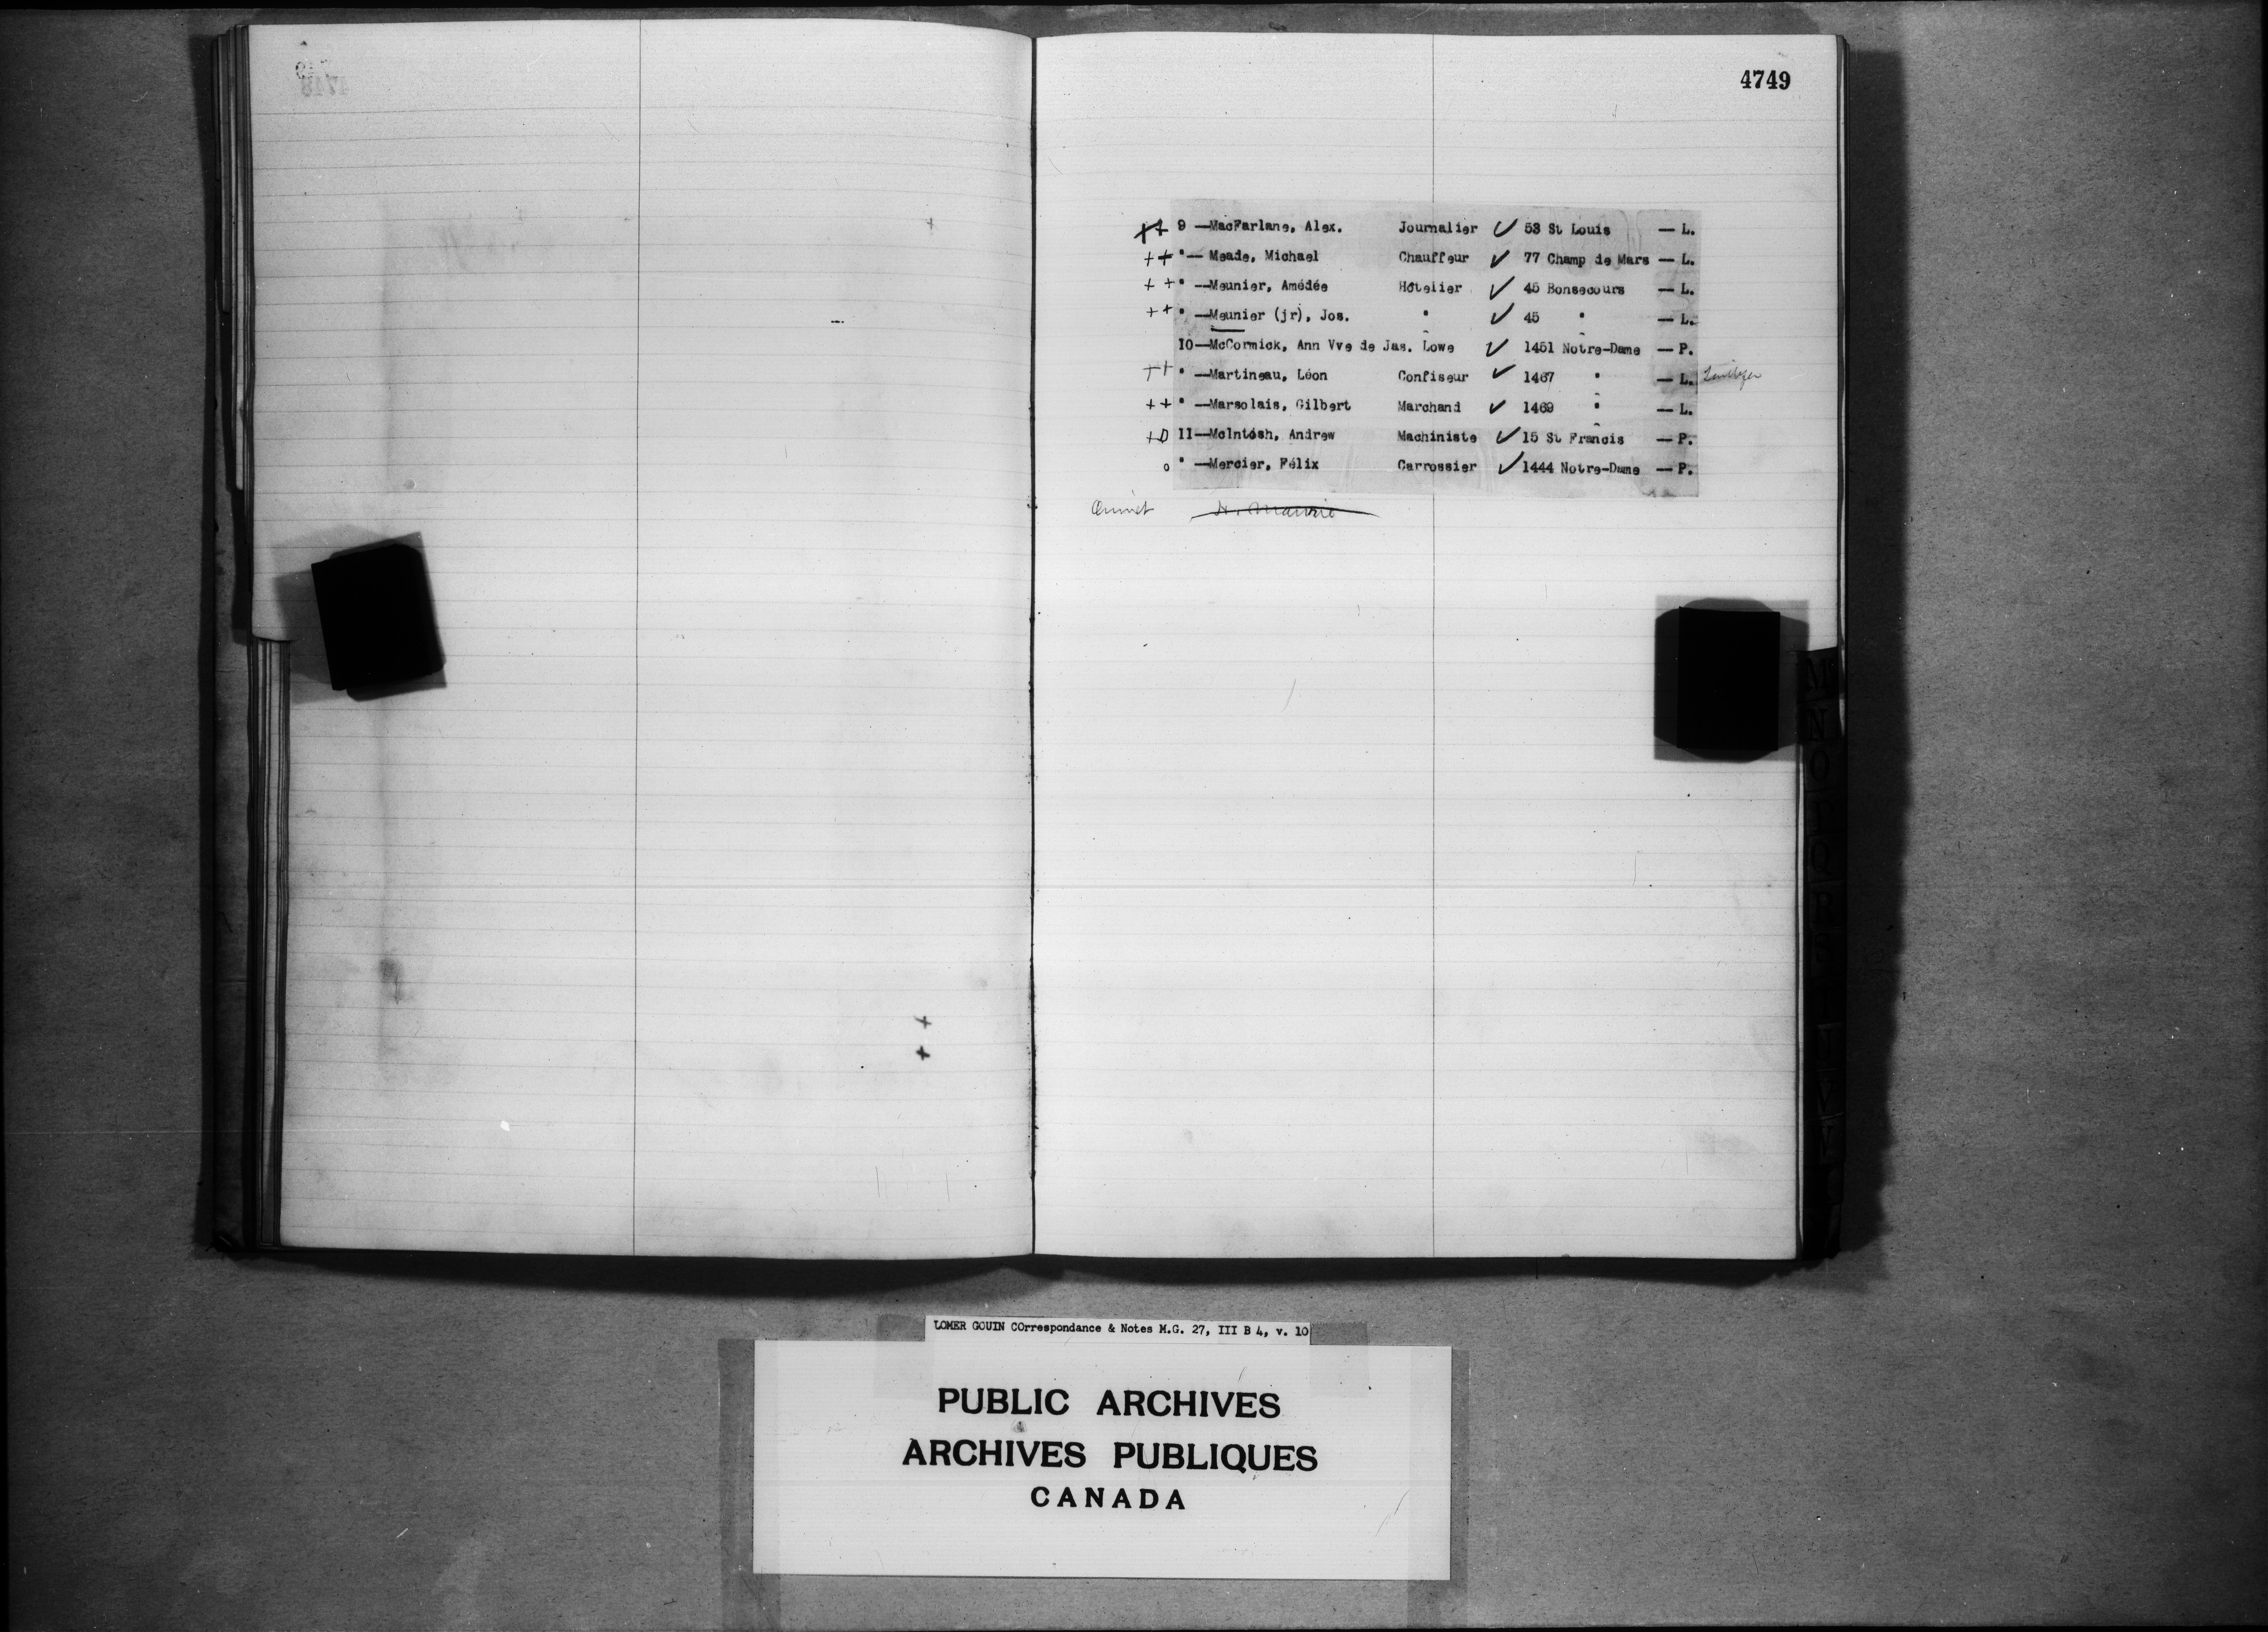 4749
++ 9 —MacFarlane, Alex. Journalier ✓ 53 St Louis — L.
++ " — Meade, Michael Chauffeur ✓ 77 Champ de Mars — L.
++ " —Meunier, Amédée Hôtelier ✓ 45 Bonsecours — L.
++ " —Meunier (jr), Jos. " ✓ 45 " — L.
10—McCormick, Ann Vve de Jas. Lowe ✓ 1451 Notre-Dame — P.
++ " —Martineau, Léon Confiseur ✓ 1467 " — L.
++ " —Marsolais, Gilbert Marchand ✓ 1469 " — L.
+o 11—McIntosh, Andrew Machiniste ✓ 15 St Francis — P.
o " —Mercier, Félix Carrossier ✓ 1444 Notre-Dame — P.
M
N
O
Q
R
LOMER GOUIN COrrespondance & Notes M.G. 27, III B 4, v. 10
PUBLIC ARCHIVES
ARCHIVES PUBLIQUES
CANADA